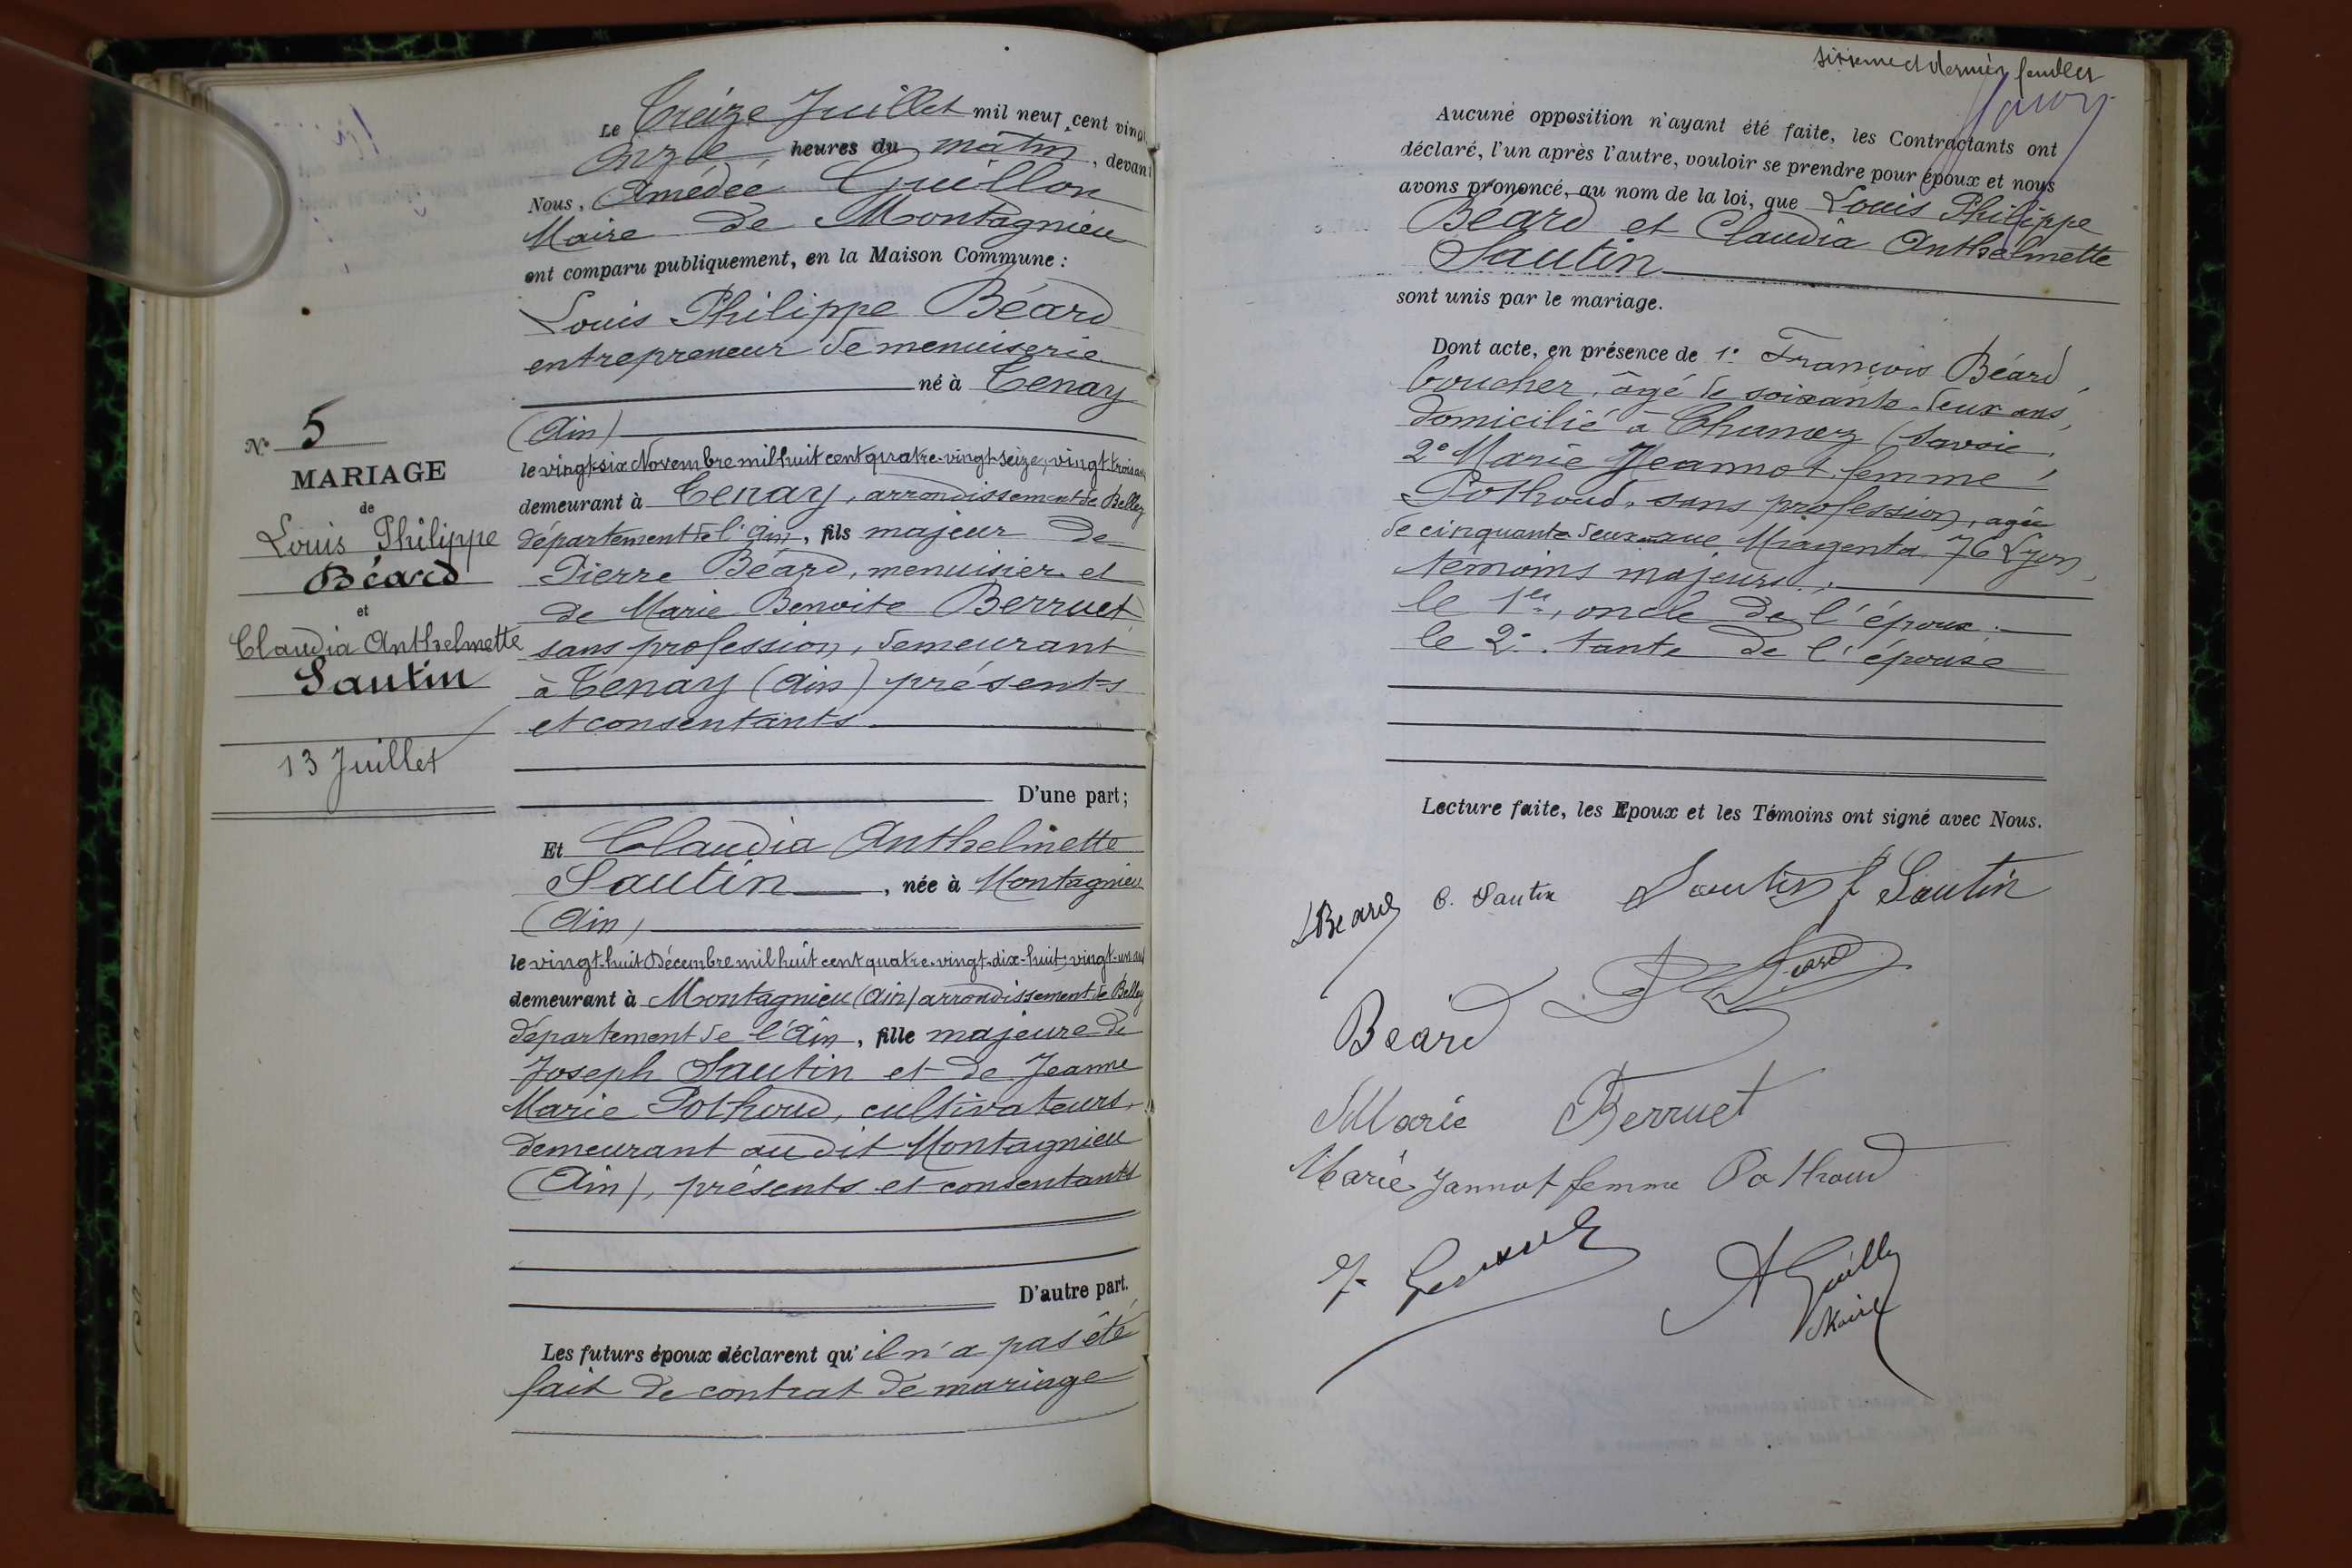 Le Treize Juillet mil neuf cent vingt
onze heures du matin, devant
Nous, Amédée Guillon
Maire de Montagnieu
ont comparu publiquement, en la Maison Commune :
Louis Philippe Béard
entrepreneur de menuiserie
né à Tenay
(Ain)
le vingt-six Novembre mil huit cent quatre-vingt-seize, vingt trois ans
demeurant à Tenay, arrondissement de Belley
département de l'Ain, fils majeur de
Pierre Béard, menuisier et
de Marie Benoite Berruet
sans profession, demeurant
à Tenay (Ain) présents
et consentants
D'une part;
Et Claudia Anthelmette
Sautin, née à Montagnieu
(Ain)
le vingt-huit Décembre mil huit cent quatre-vingt-dix-huit, vingt-un ans
demeurant à Montagnieu (Ain) arrondissement de Belley
département de l'Ain, fille majeure de
Joseph Sautin et de Jeanne
Marie Pothoud, cultivateurs,
demeurant audit Montagnieu
(Ain), présents et consentants
D'autre part.
Les futurs époux déclarent qu'il n'a pas été
fait de contrat de mariage
N° 5
MARIAGE
de
Louis Philippe
Béard
et
Claudia Anthelmette
Sautin
13 Juillet
sixieme et dernier feuillet
Aucune opposition n'ayant été faite, les Contractants ont
déclaré, l'un après l'autre, vouloir se prendre pour époux et nous
avons prononcé, au nom de la loi, que Louis Philippe
Béard et Claudia Anthelmette
Sautin
sont unis par le mariage.
Dont acte, en présence de 1° François Béard,
boucher, âgé de soixante-deux ans,
domicilié à (Savoie),
2° Marie Jeannot femme
Pothoud, sans profession, agée
de cinquante deux rue Magenta 76 Lyon,
témoins majeurs,
le 1er, oncle de l'époux.
le 2e. tante de l'épouse
Lecture faite, les Epoux et les Témoins ont signé avec Nous.
LBeard C. Sautin Sautin f Sautin
Beard
Beard
Marie Berruet
Marie Jannot femme Pothoud
A Guillon
Maire